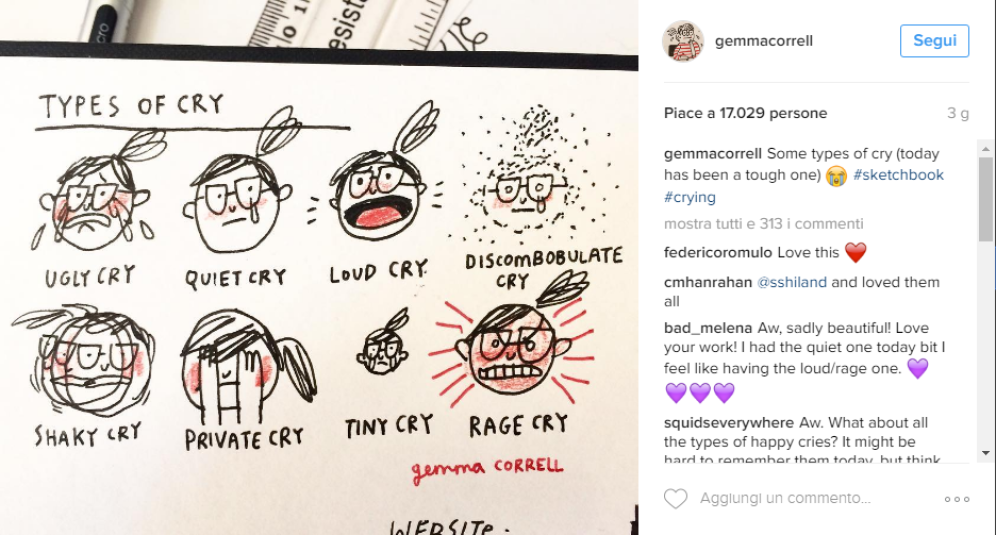 cro
esista
TYPES OF CRY
UGLY CRY
QUIET CRY
LOUD CRY.
DISCOMBOBULATE
CRY
SHAKY CRY
PRIVATE CRY
TINY CRY
RAGE CRY
gemma CORRELL
WEBSITE.
gemmacorrell
Segui
Piace a 17.029 persone
3 g
gemmacorrell Some types of cry (today
has been a tough one) 😭 #sketchbook
#crying
mostra tutti e 313 i commenti
federicoromulo Love this ❤️
cmhanrahan @sshiland and loved them
all
bad_melena Aw, sadly beautiful! Love
your work! I had the quiet one today bit I
feel like having the loud/rage one. 💜
💜💜💜
squidseverywhere Aw. What about all
the types of happy cries? It might be
hard to remember them today, but think
Aggiungi un commento...